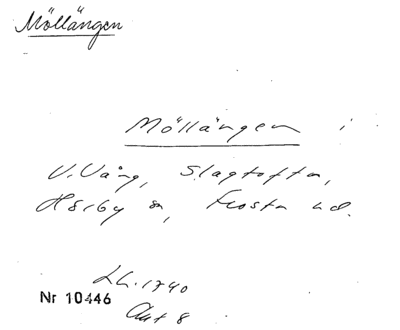 Möllängen
Möllängen i
V. Vång, Slagtofta,
Hörby sn, Frosta hd.
Lh. 1740
Nr 10446
Akt 8